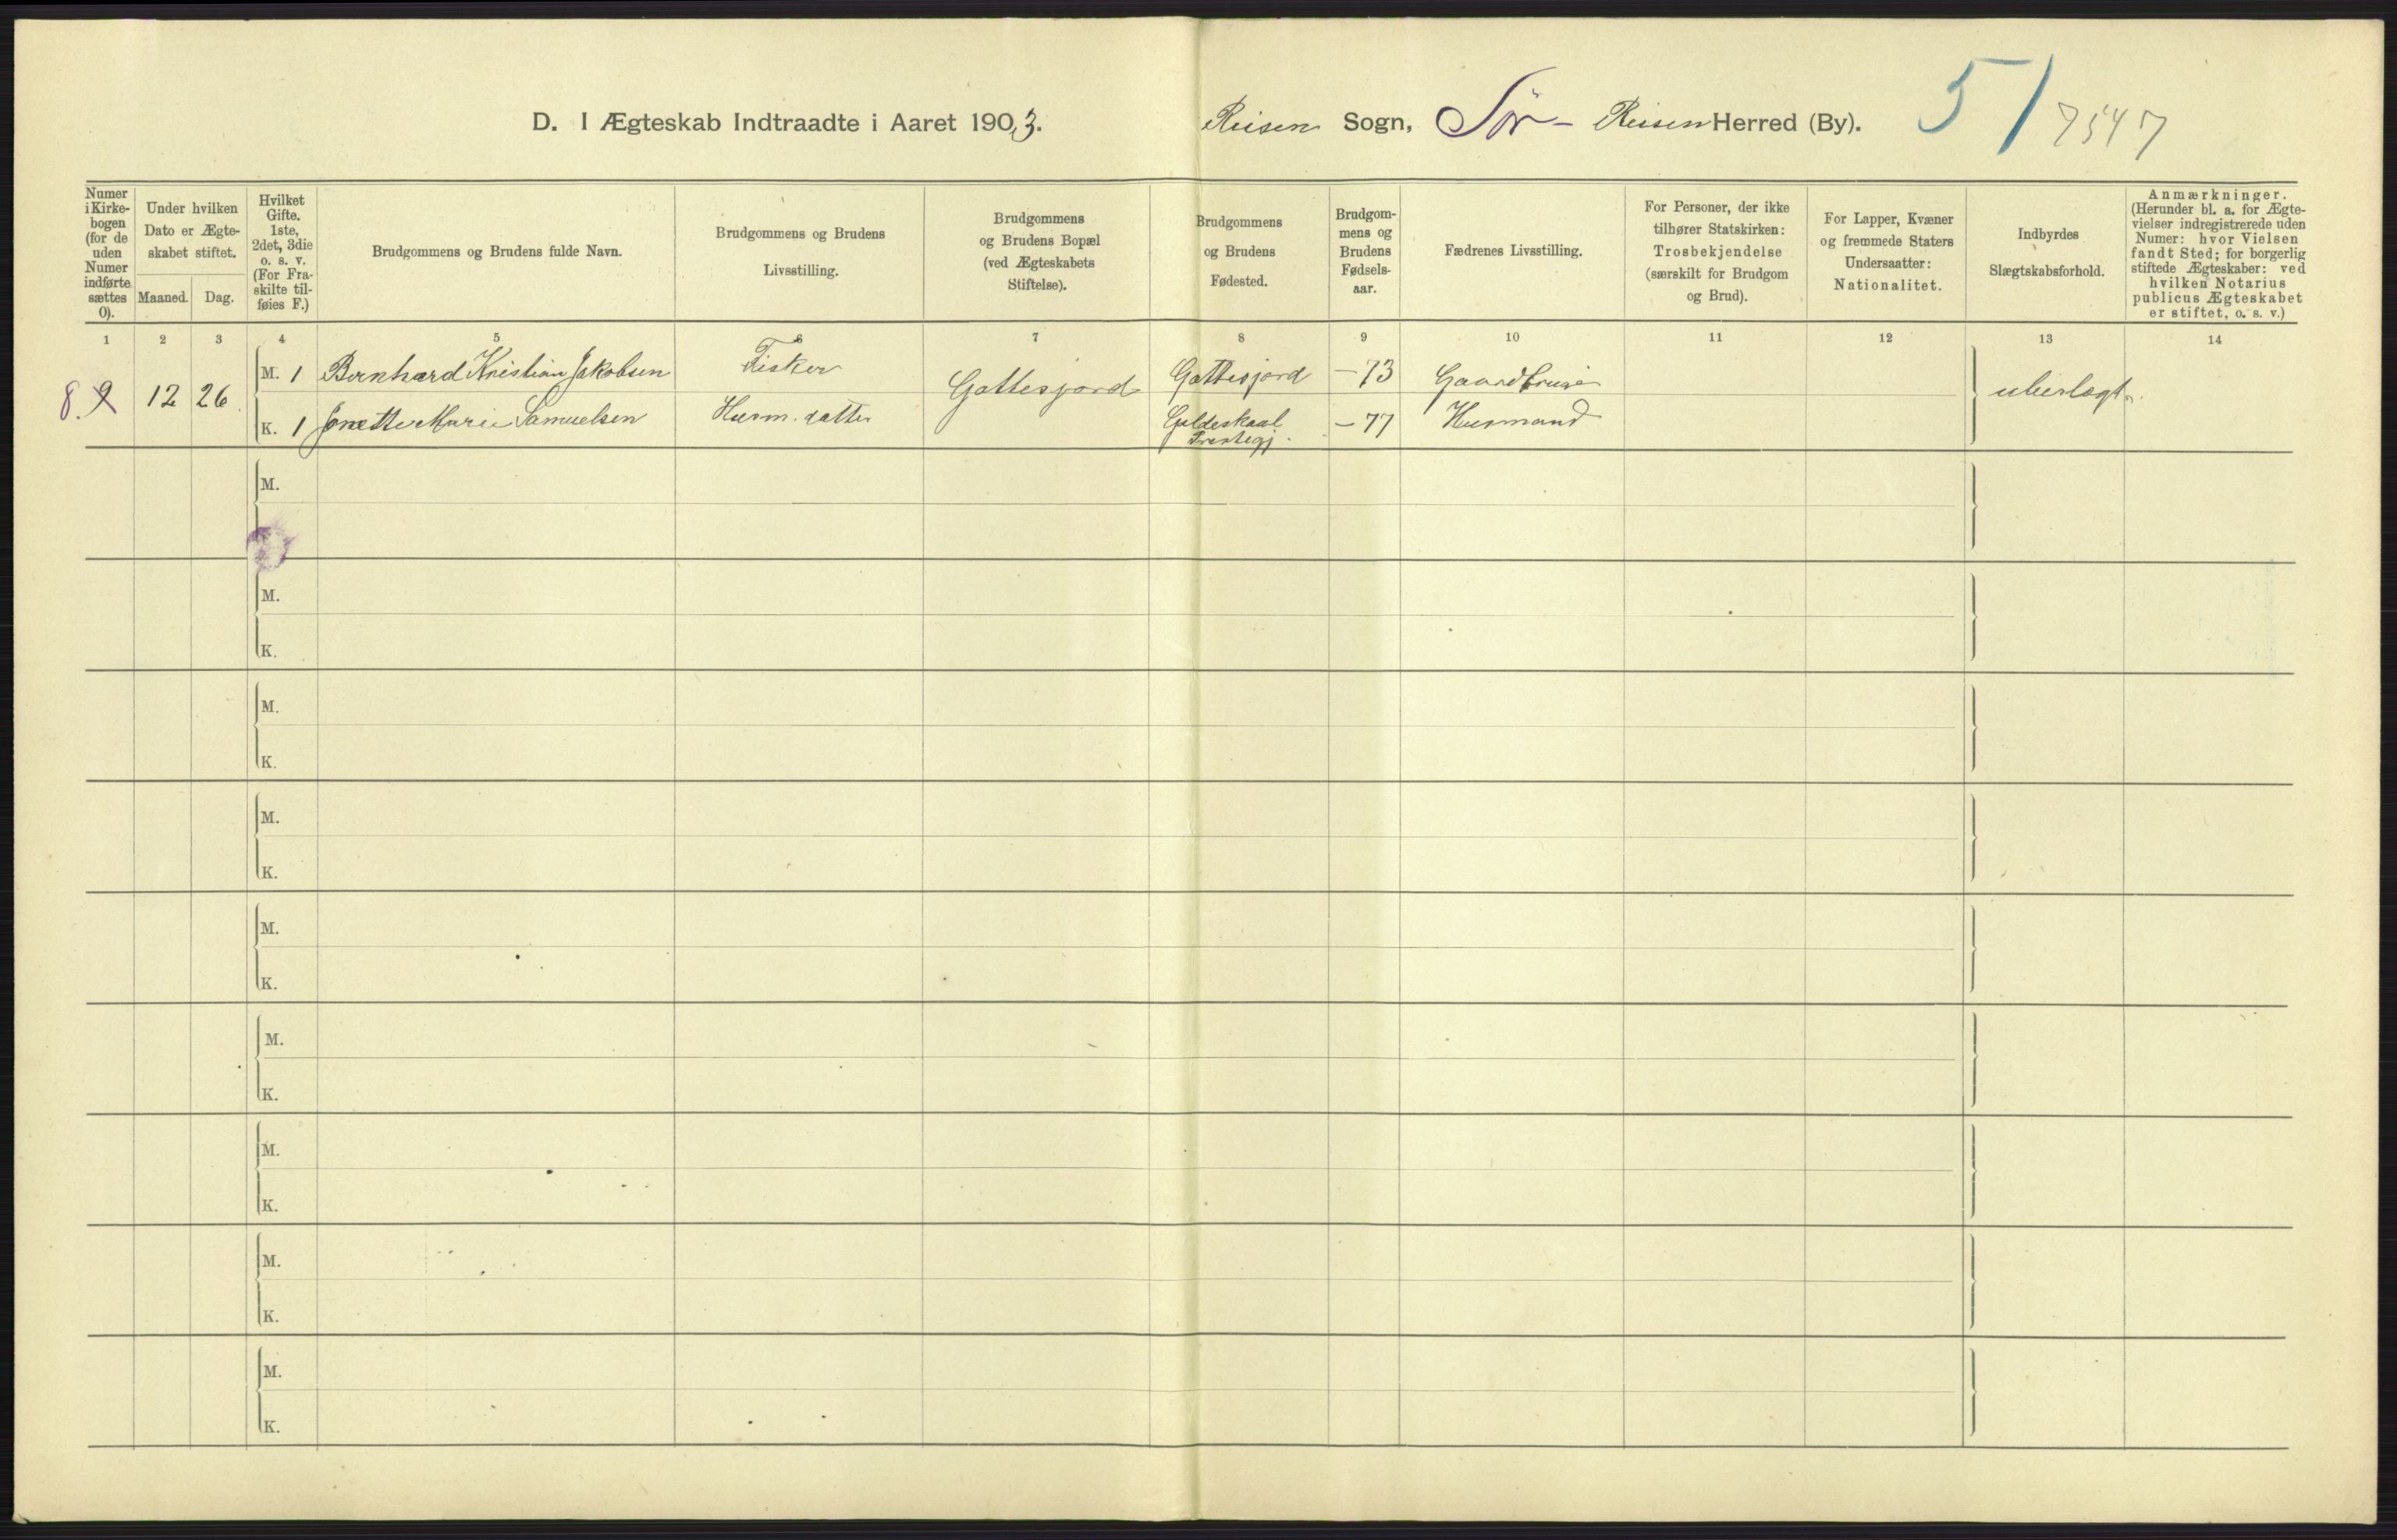 D. I Ægteskab Indtraadte i Aaret 1903. Reisen Sogn, Sør- Reisen Herred (By). 51 7547
Numer i Kirkebogen (for de uden Numer indførte sættes 0).
Under hvilken Dato er Ægteskabet stiftet.
Maaned. Dag.
Hvilket Gifte. 1ste, 2det, 3die o. s. v. (For Fraskilte tilføies F.)
Brudgommens og Brudens fulde Navn.
Brudgommens og Brudens Livsstilling.
Brudgommens og Brudens Bopæl (ved Ægteskabets Stiftelse).
Brudgommens og Brudens Fødested.
Brudgommens og Brudens Fødselsaar.
Fædrenes Livsstilling.
For Personer, der ikke tilhører Statskirken: Trosbekjendelse (særskilt for Brudgom og Brud).
For Lapper, Kvæner og fremmede Staters Undersaatter: Nationalitet.
Indbyrdes Slægtskabsforhold.
Anmærkninger. (Herunder bl. a. for Ægtevielser indregistrerede uden Numer: hvor Vielsen fandt Sted; for borgerlig stiftede Ægteskaber: ved hvilken Notarius publicus Ægteskabet er stiftet, o. s. v.)
1 2 3 4 5 6 7 8 9 10 11 12 13 14
M. 1 Bernhard Kristian Jakobsen Fisker Gottesjord -73 Gaardbruger
8. 9 12 26. Gottesjord ubeslægt.
K. 1 Jonette Marie Samuelsen Husm. datter Gildeskaal Prestegj. -77 Husmand
M.
M.
K.
M.
K.
M.
K.
M.
K.
M.
K.
M.
K.
M.
K.
M.
K.